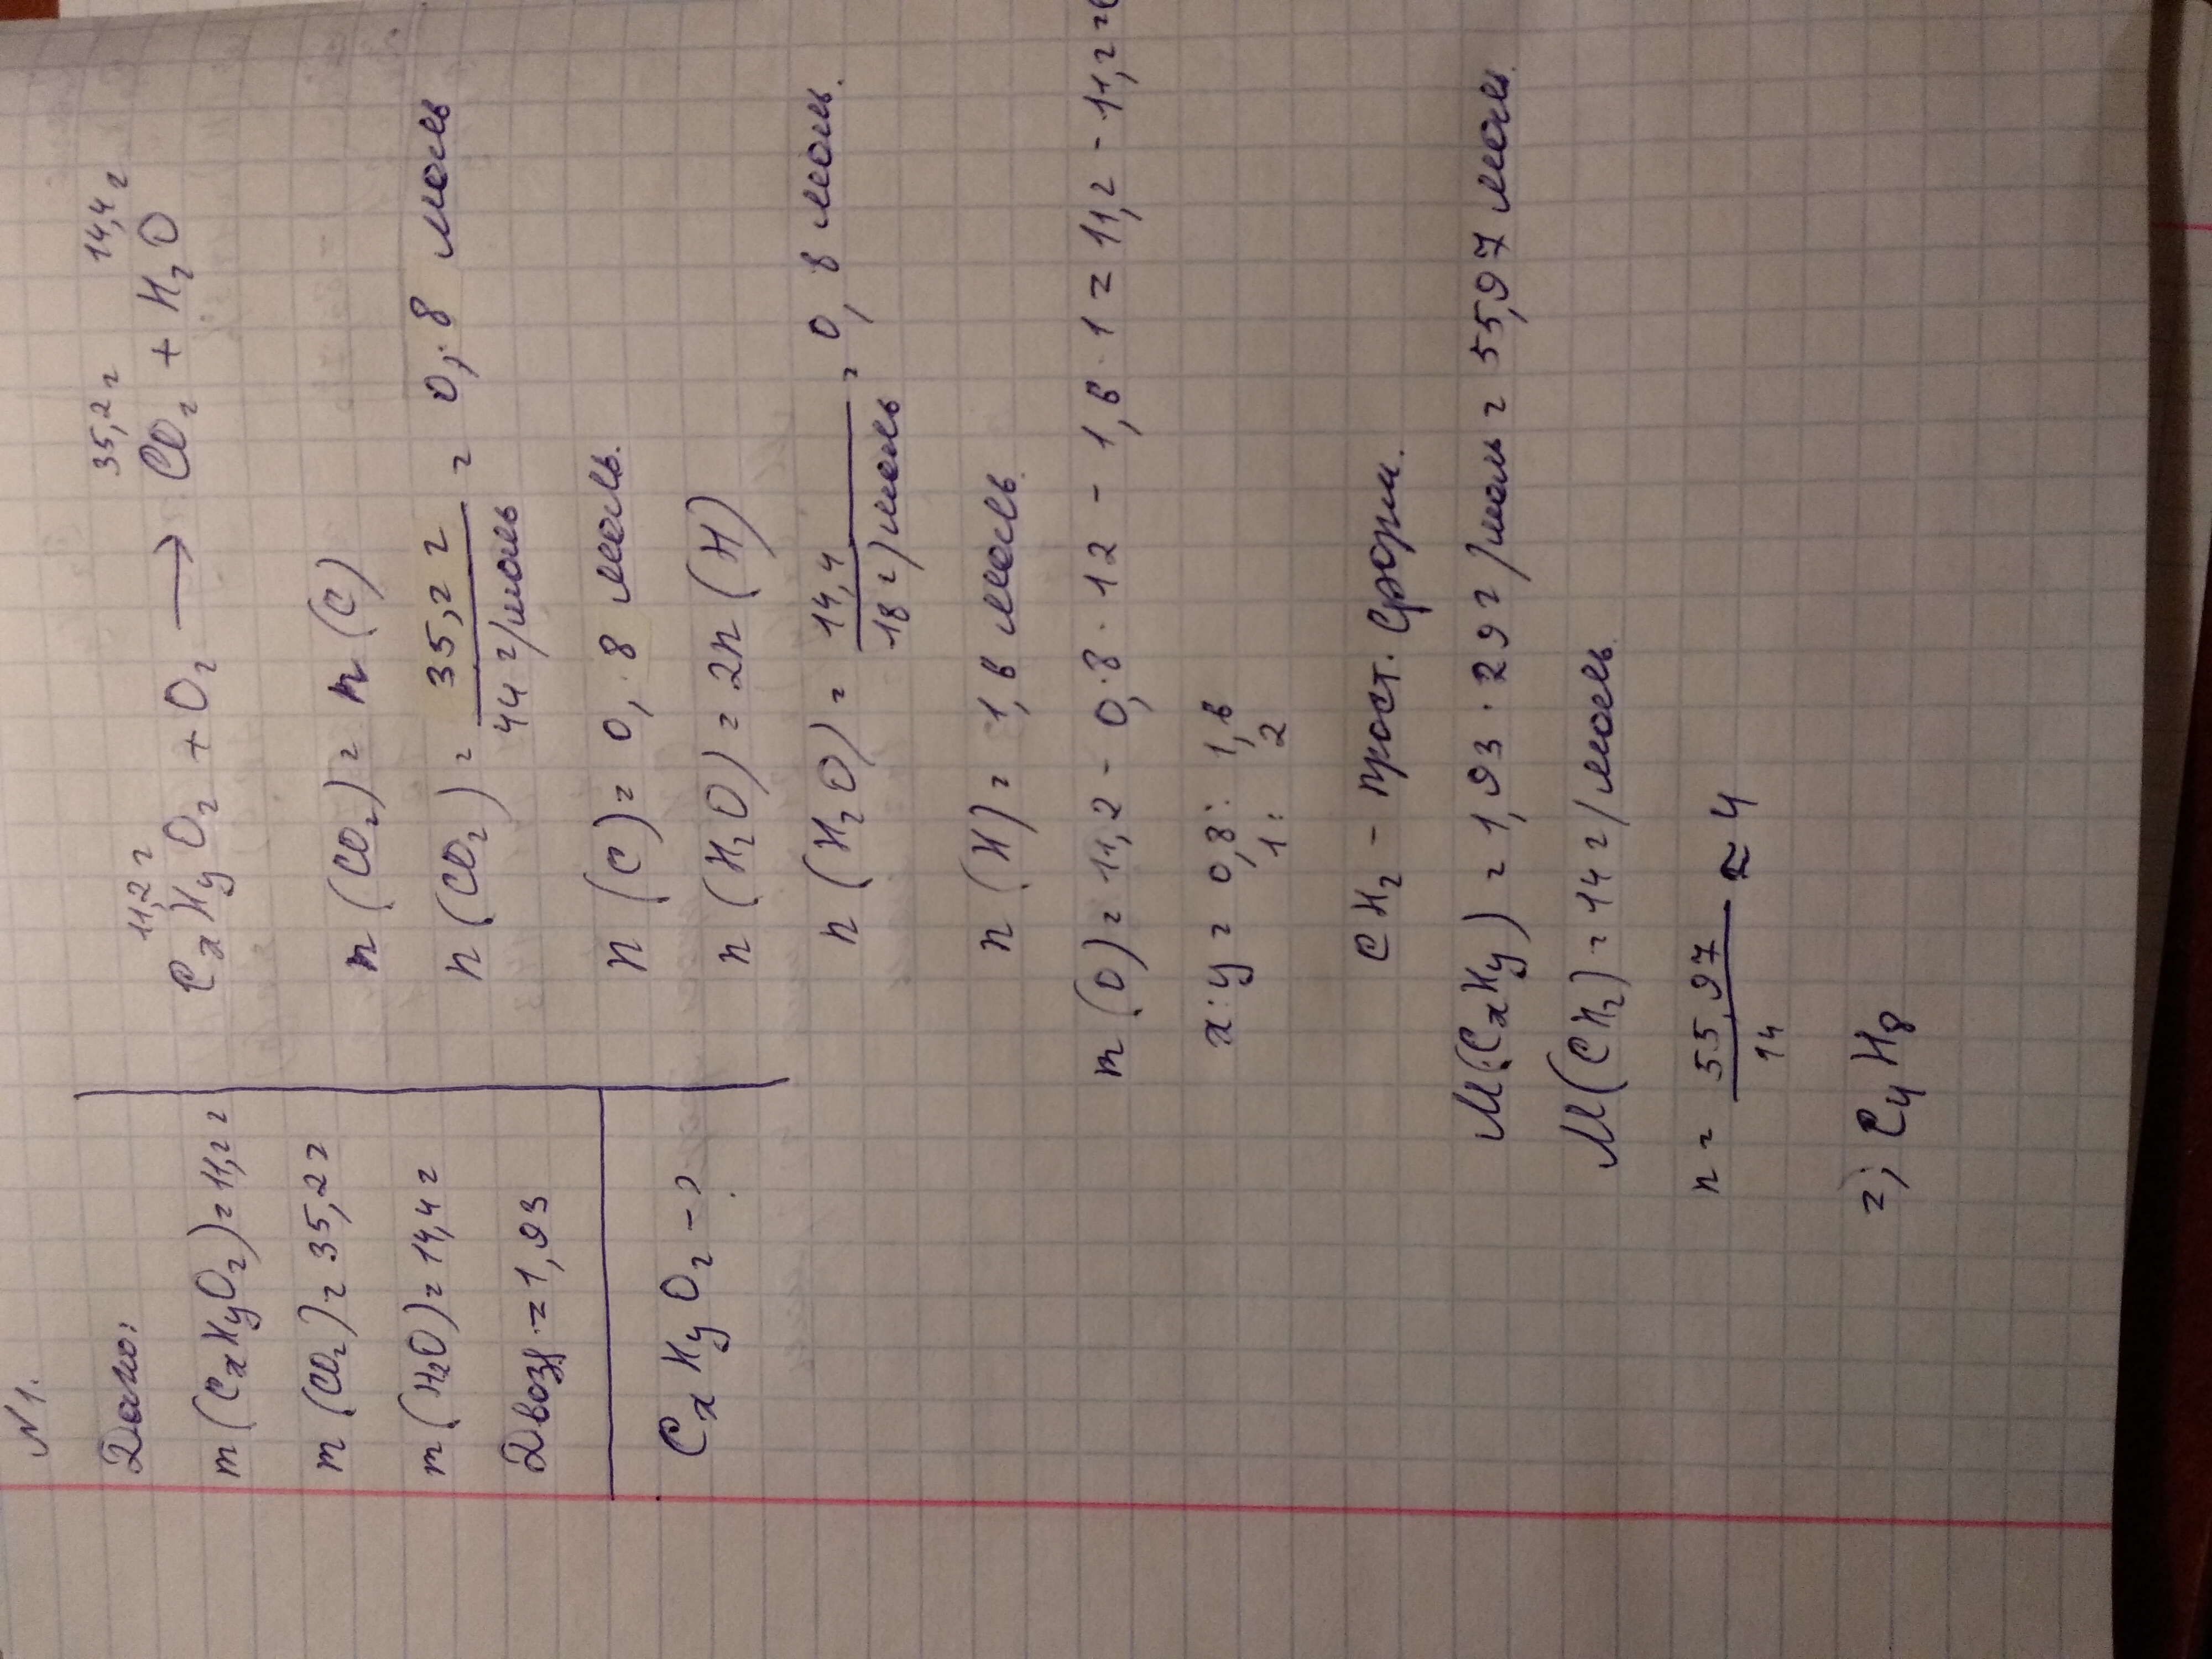 N1.
Дано:
m (CxHyO2) = 11,2 г
m (CO2) = 35,2 г
m (H2O) = 14,4 г
Dвозд. = 1,93
CxHyO2 - ?
11,2 г 35,2 г 14,4 г
CxHyO2 + O2 → CO2 + H2O
n (CO2) = n (C)
n (CO2) = 35,2 г / 44 г/моль = 0,8 моль
n (C) = 0,8 моль.
n (H2O) = 2n (H)
n (H2O) = 14,4 / 18 г/моль = 0,8 моль.
n (H) = 1,6 моль.
m (O) = 11,2 - 0,8 · 12 - 1,6 · 1 = 11,2 - 11,2 = 0
x : y = 0,8 : 1,6
1 : 2
CH2 - прост. форм.
M (CxHy) = 1,93 · 29 г/моль = 55,97 моль.
M (CH2) = 14 г/моль.
n = 55,97 / 14 ≈ 4
=> C4H8